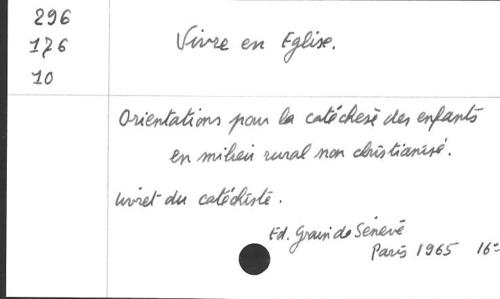 296
176
10
Vivre en Eglise.
Orientations pour la catéchèse des enfants
en milieu rural non christianisé.
Livret du catéchiste.
Ed. Grain de Sénevé
Paris 1965 16°